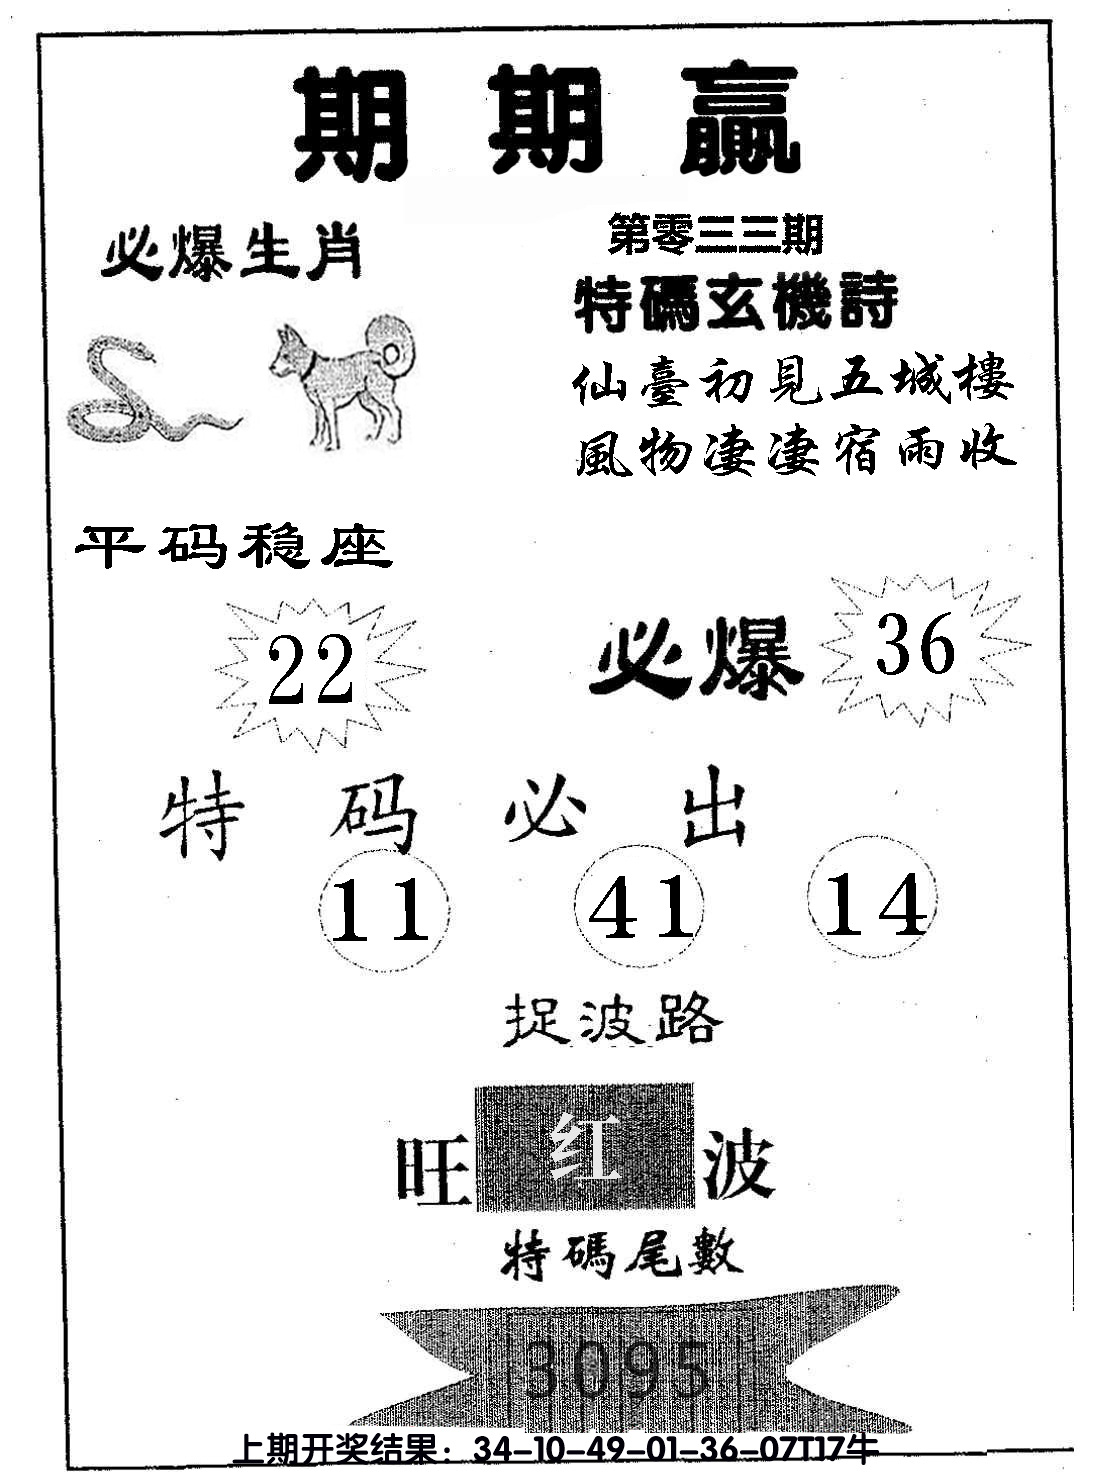 期期赢
必爆生肖
第零三三期
特碼玄機詩
仙臺初見五城樓
風物凄凄宿雨收
平码稳座
22
必爆
36
特码必出
11 41 14
捉波路
旺红波
特碼尾數
3095
上期开奖结果：34-10-49-01-36-07T17牛